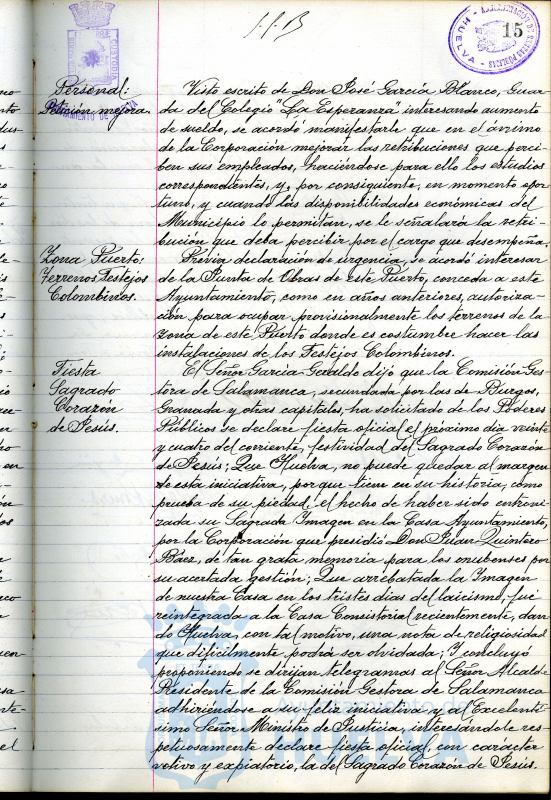 15
HUELVA
Personal:
Petición mejora.
Visto escrito de Don José García Blanco, Guar-
da del Colegio "La Esperanza" interesando aumento
de sueldo, se acordó manifestarle que en el ánimo
de la Corporación mejorar las retribuciones que perci-
ben sus empleados, haciéndose para ello los estudios
correspondientes, y, por consiguiente, en momento opor-
tuno, y cuando las disponibilidades económicas del
Municipio lo permitan, se le señalará la retri-
bución que deba percibir por el cargo que desempeña.
Zona Puerto:
Terrenos Festejos
Colombinos.
Previa declaración de urgencia, se acordó interesar
de la Junta de Obras de este Puerto, conceda a este
Ayuntamiento, como en años anteriores, autoriza-
ción para ocupar provisionalmente los terrenos de la
zona de este Puerto donde es costumbre hacer las
instalaciones de los Festejos Colombinos.
Fiesta
Sagrado
Corazón
de Jesús.
El Señor García-Geraldo dijo que la Comisión Ges-
tora de Salamanca, secundada por las de Burgos,
Granada y otras capitales, ha solicitado de los Poderes
Públicos se declare fiesta oficial el próximo día veinte
y cuatro del corriente, festividad del Sagrado Corazón
de Jesús; Que Huelva, no puede quedar al margen
de esta iniciativa, porque tiene en su historia, como
prueba de su piedad, el hecho de haber sido entroni-
zada su Sagrada Imagen en la Casa Ayuntamiento,
por la Corporación que presidió Don Juan Quintero
Báez, de tan grata memoria para los onubenses por
su acertada gestión; Que arrebatada la Imagen
de nuestra Casa en los tristes días del laicismo, fue
reintegrada a la Casa Consistorial recientemente, dan-
do Huelva, con tal motivo, una nota de religiosidad
que difícilmente podrá ser olvidada; Y concluyó
proponiendo se dirijan telegramas al Señor Alcalde
Presidente de la Comisión Gestora de Salamanca
adhiriéndose a su feliz iniciativa y al Excelentí-
simo Señor Ministro de Justicia, interesándole res-
petuosamente declare fiesta oficial, con carácter
votivo y expiatorio, la del Sagrado Corazón de Jesús.